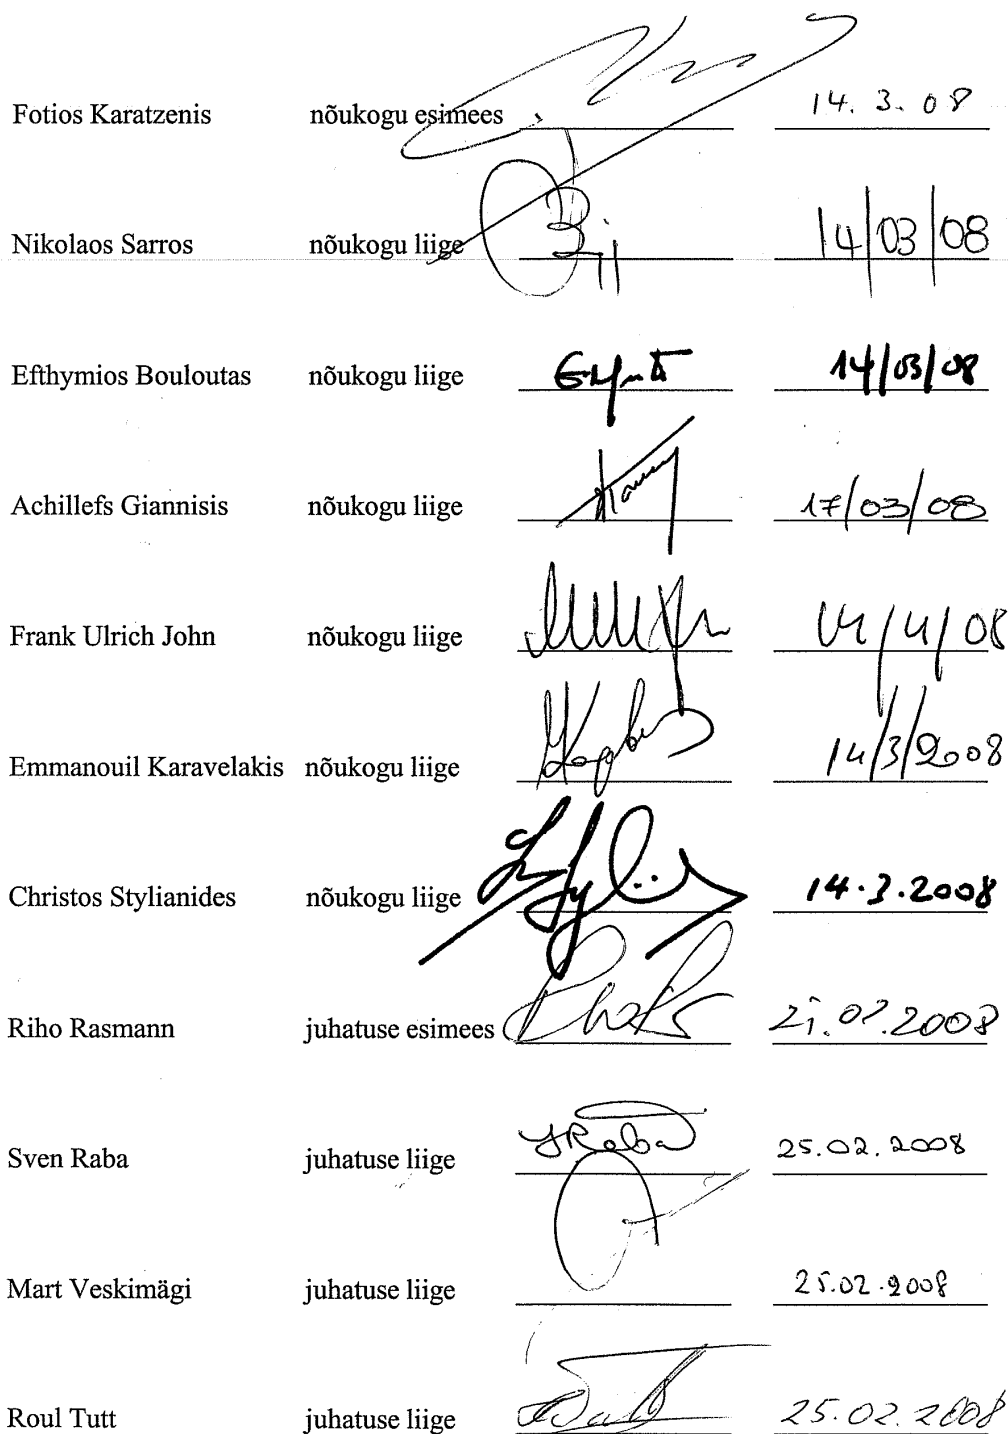 Fotios Karatzenis nõukogu esimees 14. 3. 08
Nikolaos Sarros nõukogu liige 14/03/08
Efthymios Bouloutas nõukogu liige 14/03/08
Achillefs Giannisis nõukogu liige 17/03/08
Frank Ulrich John nõukogu liige
Emmanouil Karavelakis nõukogu liige 14/3/2008
Christos Stylianides nõukogu liige 14.3.2008
Riho Rasmann juhatuse esimees
Sven Raba juhatuse liige 25.02.2008
Mart Veskimägi juhatuse liige 25.02.2008
Roul Tutt juhatuse liige 25.02.2008